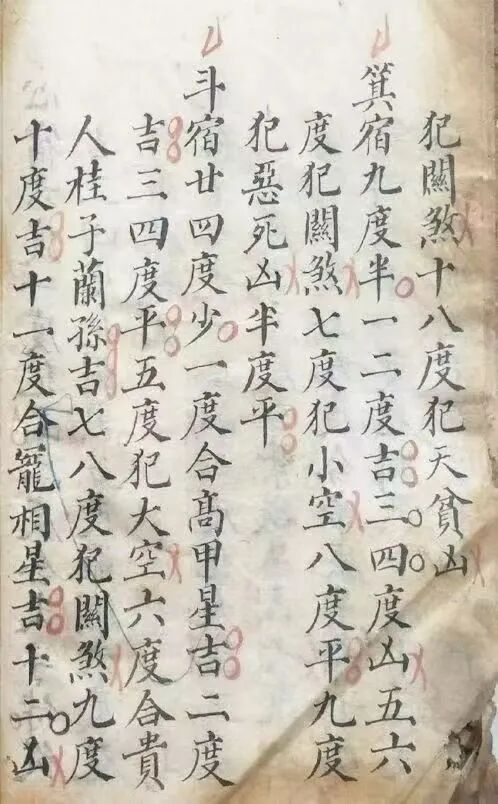 犯關煞十八度犯天貧凶
箕宿九度半一二度吉三四度凶五六
度犯關煞七度犯小空八度平九度
犯惡死凶半度平
斗宿廿四度少一度合高甲星吉二度
吉三四度平五度犯大空六度合貴
人桂子蘭孫吉七八度犯關煞九度
十度吉十一度合寵相星吉十二凶